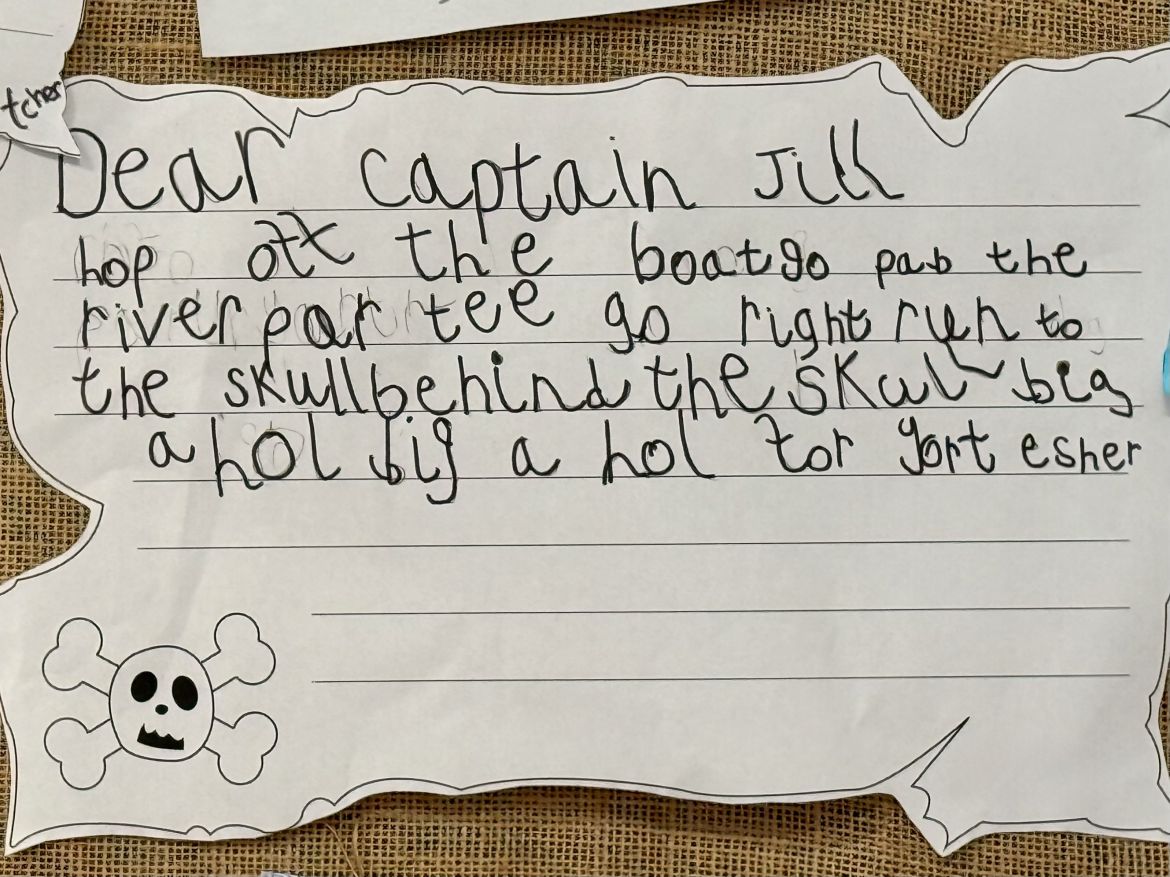 tcher
Dear captain Jill
hop off the boat go pab the
river par tee go right run to
the skull behind the skul big
a hol big a hol for yort esher